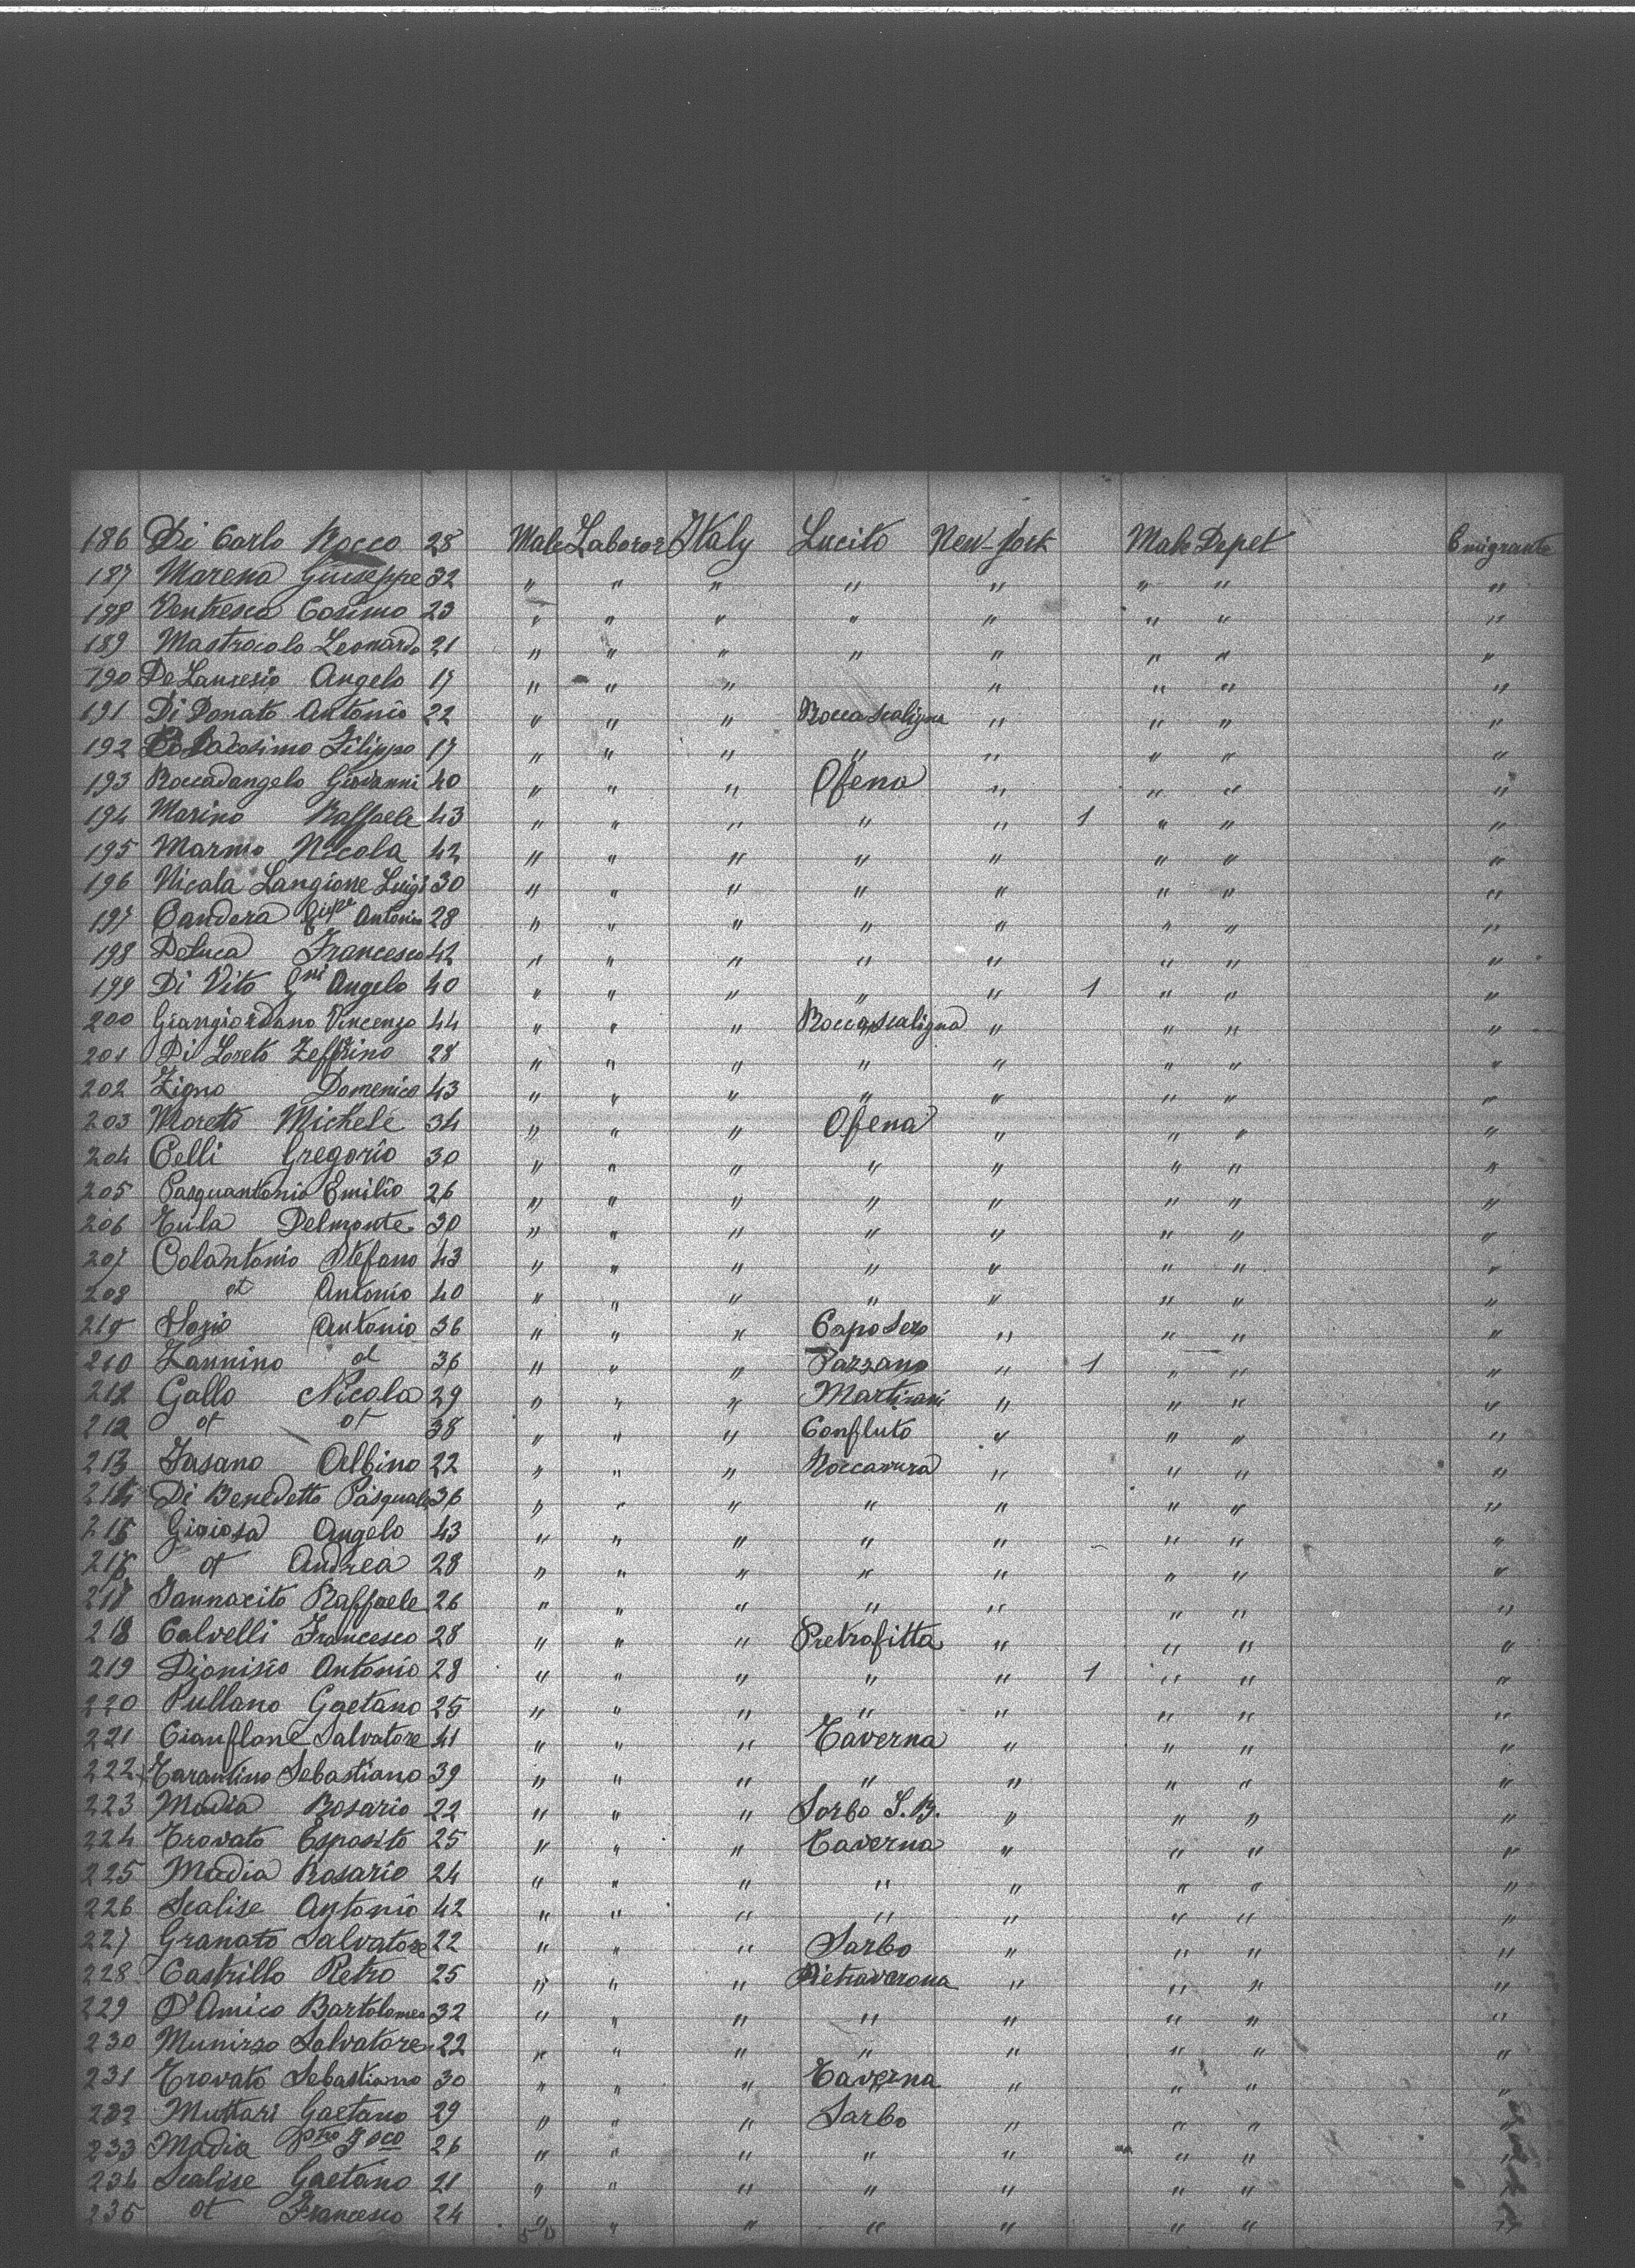 186 Di Carlo Rocco 28 Male Laboror Italy Lucito New-York Male Depet Emigrante
187 Marena Giuseppe 32 " " " " " " " "
188 Ventresca Cosimo 23 " " " " " " " "
189 Mastrocolo Leonardo 21 " " " " " " " "
190 De Lancesio Angelo 17 " " " " " " "
191 Di Donato Antonio 22 " " " Roccascaligna " " " "
192 Coladosimo Filippo 17 " " " " " " " "
193 Roccadangelo Giovanni 40 " " " Ofena " " " "
194 Marino Raffaele 43 " " " " " 1 " " "
195 Marmo Nicola 42 " " " " " " " "
196 Nicala Langione Luigi 30 " " " " " " " "
197 Candora Gius Antonio 28 " " " " " " " "
198 Deluca Francesco 42 " " " " " " " "
199 Di Vito Gni Angelo 40 " " " " " 1 " " "
200 Giangiordano Vincenzo 44 " " " Roccascaligna " " " "
201 Di Loreto Zeffirino 28 " " " " " " " "
202 Zigno Domenico 43 " " " " " " " "
203 Moretti Michele 34 " " " Ofena " " " "
204 Celli Gregorio 30 " " " " " " " "
205 Pasquantonio Emilio 26 " " " " " " " "
206 Eula Delmonte 30 " " " " " " " "
207 Colantonio Stefano 43 " " " " " " " "
208 ot Antonio 40 " " " " " " " "
219 Sozio Antonio 36 " " " Caposero " " " "
210 Zannino ot 36 " " " Pazzano " 1 " " "
211 Gallo Nicola 29 " " " Martirani " " " "
212 ot ot 38 " " " Confluto " " " "
213 Fasano Albino 22 " " " Roccavura " " " "
214 Di Benedetto Pasquale 36 " " " " " " " "
215 Gioiosa Angelo 43 " " " " " " " "
216 ot Andrea 28 " " " " " " " "
217 Iannacito Raffaele 26 " " " " " " " "
218 Calvelli Francesco 28 " " " Pietrafitta " " " "
219 Dionisio Antonio 28 " " " " " 1 " " "
220 Pullano Gaetano 25 " " " " " " " "
221 Cianflone Salvatore 41 " " " Taverna " " " "
222 Tarantino Sebastiano 39 " " " " " " " "
223 Madia Rosario 22 " " " Sorbo S.B. " " " "
224 Trovato Esposito 25 " " " Taverna " " " "
225 Madia Rosario 24 " " " " " " " "
226 Scalise Antonio 42 " " " " " " " "
227 Granato Salvatore 22 " " " Sarbo " " " "
228 Castrillo Pietro 25 " " " Pietraverona " " " "
229 D'Amico Bartolomeo 32 " " " " " " " "
230 Munizzo Salvatore 22 " " " " " " " "
231 Trovato Sebastiano 30 " " " Taverna " " " "
232 Muttari Gaetano 29 " " " Sarbo " " " "
233 Madia 26 " " " " " " " "
234 Scalise Gaetano 21 " " " " " " " "
235 ot Francesco 24 " " " " " " " "
50